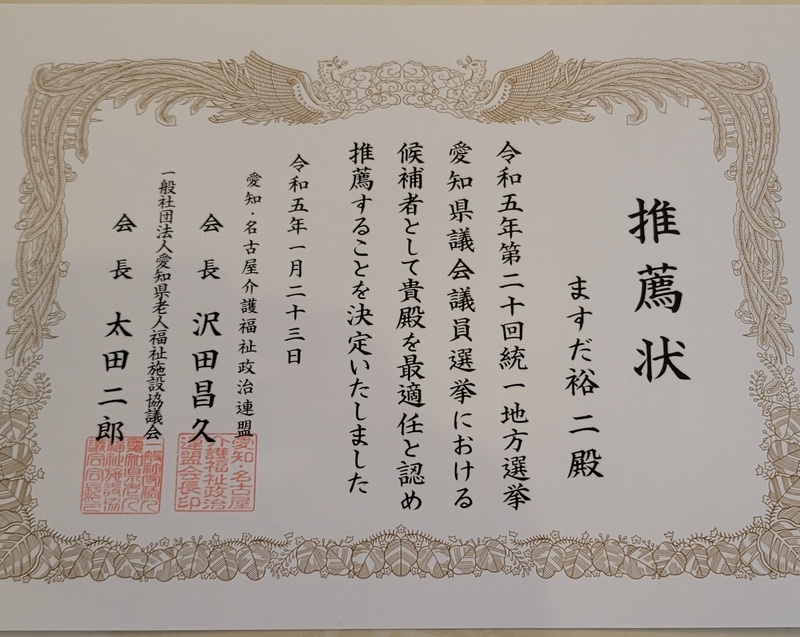 推薦状
ますだ裕二殿
令和五年第二十回統一地方選挙
愛知県議会議員選挙における
候補者として貴殿を最適任と認め
推薦することを決定いたしました
令和五年一月二十三日
愛知・名古屋介護福祉政治連盟
会長 沢田昌久
愛知・名古屋
介護福祉政治
連盟会長印
一般社団法人愛知県老人福祉施設協議会
会長 太田二郎